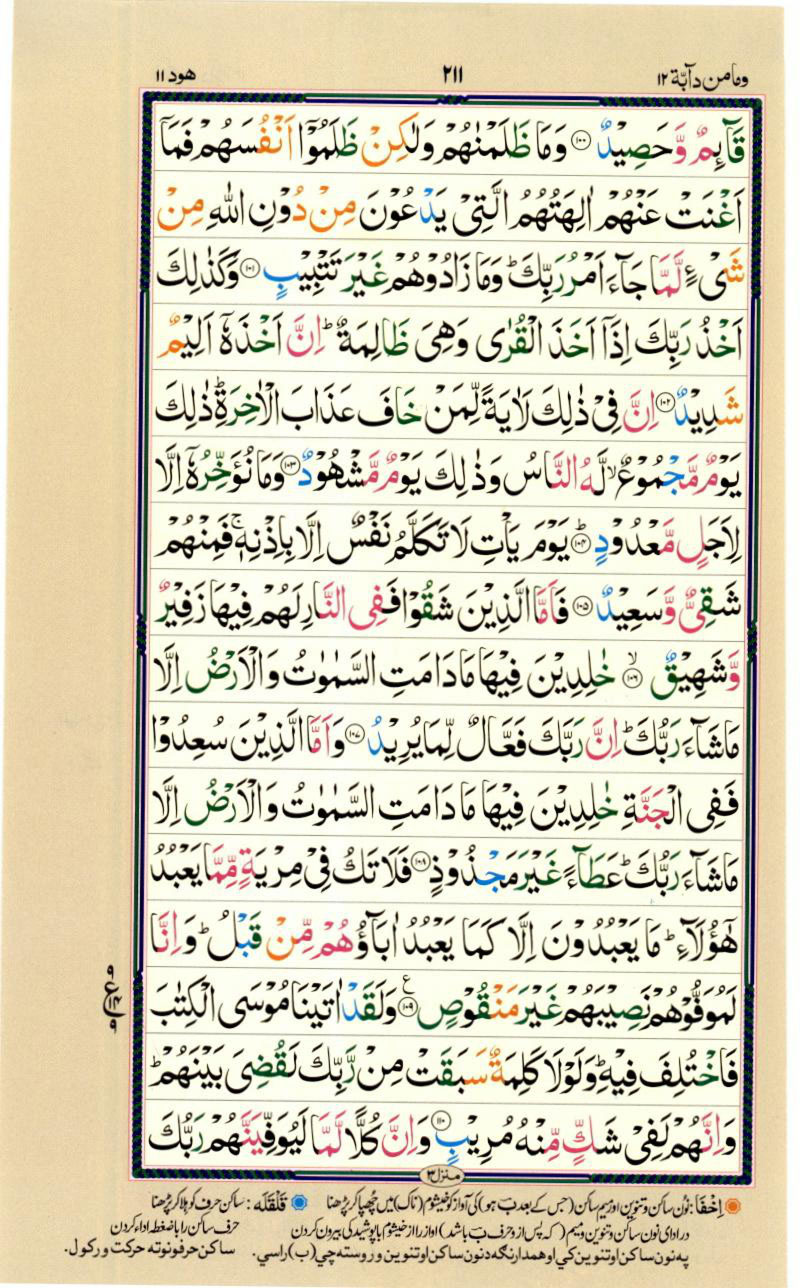 وما من دآبّة ١٢ ٢١١ هود ١١
قَآئِمٌ وَّحَصِيْدٌ ﴿١٠٠﴾ وَمَا ظَلَمْنٰهُمْ وَلٰكِنْ ظَلَمُوْۤا اَنْفُسَهُمْ فَمَاۤ
اَغْنَتْ عَنْهُمْ اٰلِهَتُهُمُ الَّتِيْ يَدْعُوْنَ مِنْ دُوْنِ اللّٰهِ مِنْ
شَيْءٍ لَّمَّا جَآءَ اَمْرُ رَبِّكَ ؕ وَمَا زَادُوْهُمْ غَيْرَ تَتْبِيْبٍ ﴿١٠١﴾ وَكَذٰلِكَ
اَخْذُ رَبِّكَ اِذَاۤ اَخَذَ الْقُرٰى وَهِيَ ظَالِمَةٌ ؕ اِنَّ اَخْذَهٗۤ اَلِيْمٌ
شَدِيْدٌ ﴿١٠٢﴾ اِنَّ فِيْ ذٰلِكَ لَاٰيَةً لِّمَنْ خَافَ عَذَابَ الْاٰخِرَةِ ؕ ذٰلِكَ
يَوْمٌ مَّجْمُوْعٌ ۙ لَّهُ النَّاسُ وَذٰلِكَ يَوْمٌ مَّشْهُوْدٌ ﴿١٠٣﴾ وَمَا نُؤَخِّرُهٗۤ اِلَّا
لِاَجَلٍ مَّعْدُوْدٍ ﴿١٠٤﴾ ؕ يَوْمَ يَاْتِ لَا تَكَلَّمُ نَفْسٌ اِلَّا بِاِذْنِهٖ ۚ فَمِنْهُمْ
شَقِيٌّ وَّسَعِيْدٌ ﴿١٠٥﴾ فَاَمَّا الَّذِيْنَ شَقُوْا فَفِي النَّارِ لَهُمْ فِيْهَا زَفِيْرٌ
وَّشَهِيْقٌ ﴿١٠٦﴾ ۙ خٰلِدِيْنَ فِيْهَا مَا دَامَتِ السَّمٰوٰتُ وَالْاَرْضُ اِلَّا
مَا شَآءَ رَبُّكَ ؕ اِنَّ رَبَّكَ فَعَّالٌ لِّمَا يُرِيْدُ ﴿١٠٧﴾ وَاَمَّا الَّذِيْنَ سُعِدُوْا
فَفِي الْجَنَّةِ خٰلِدِيْنَ فِيْهَا مَا دَامَتِ السَّمٰوٰتُ وَالْاَرْضُ اِلَّا
مَا شَآءَ رَبُّكَ ؕ عَطَآءً غَيْرَ مَجْذُوْذٍ ﴿١٠٨﴾ فَلَا تَكُ فِيْ مِرْيَةٍ مِّمَّا يَعْبُدُ
هٰۤؤُلَآءِ ؕ مَا يَعْبُدُوْنَ اِلَّا كَمَا يَعْبُدُ اٰبَآؤُهُمْ مِّنْ قَبْلُ ؕ وَاِنَّا
لَمُوَفُّوْهُمْ نَصِيْبَهُمْ غَيْرَ مَنْقُوْصٍ ﴿١٠٩﴾ ع وَلَقَدْ اٰتَيْنَا مُوْسَى الْكِتٰبَ
فَاخْتُلِفَ فِيْهِ ؕ وَلَوْلَا كَلِمَةٌ سَبَقَتْ مِنْ رَّبِّكَ لَقُضِيَ بَيْنَهُمْ ؕ
وَاِنَّهُمْ لَفِيْ شَكٍّ مِّنْهُ مُرِيْبٍ ﴿١١٠﴾ وَاِنَّ كُلًّا لَّمَّا لَيُوَفِّيَنَّهُمْ رَبُّكَ
منزل ٣
اِخْفَا: نون ساکن و تنوین اور میم ساکن (جس کے بعد ب ہو) کی آواز کو خیشوم (ناک) میں چھپا کر پڑھنا قَلْقَلَه: ساکن حرف کو ہلا کر پڑھنا
در ادای نون ساکن و تنوین و میم (که پس از و حرف ب باشد) آواز را از خیشوم با پوشید گی بیرون کردن حرف ساکن را با ضغطه اداء کردن
په نون ساکن او تنوین کې او همدارنګه د نون ساکن او تنوین وروسته چې (ب) راسي. ساکن حرفونو ته حرکت ورکول.